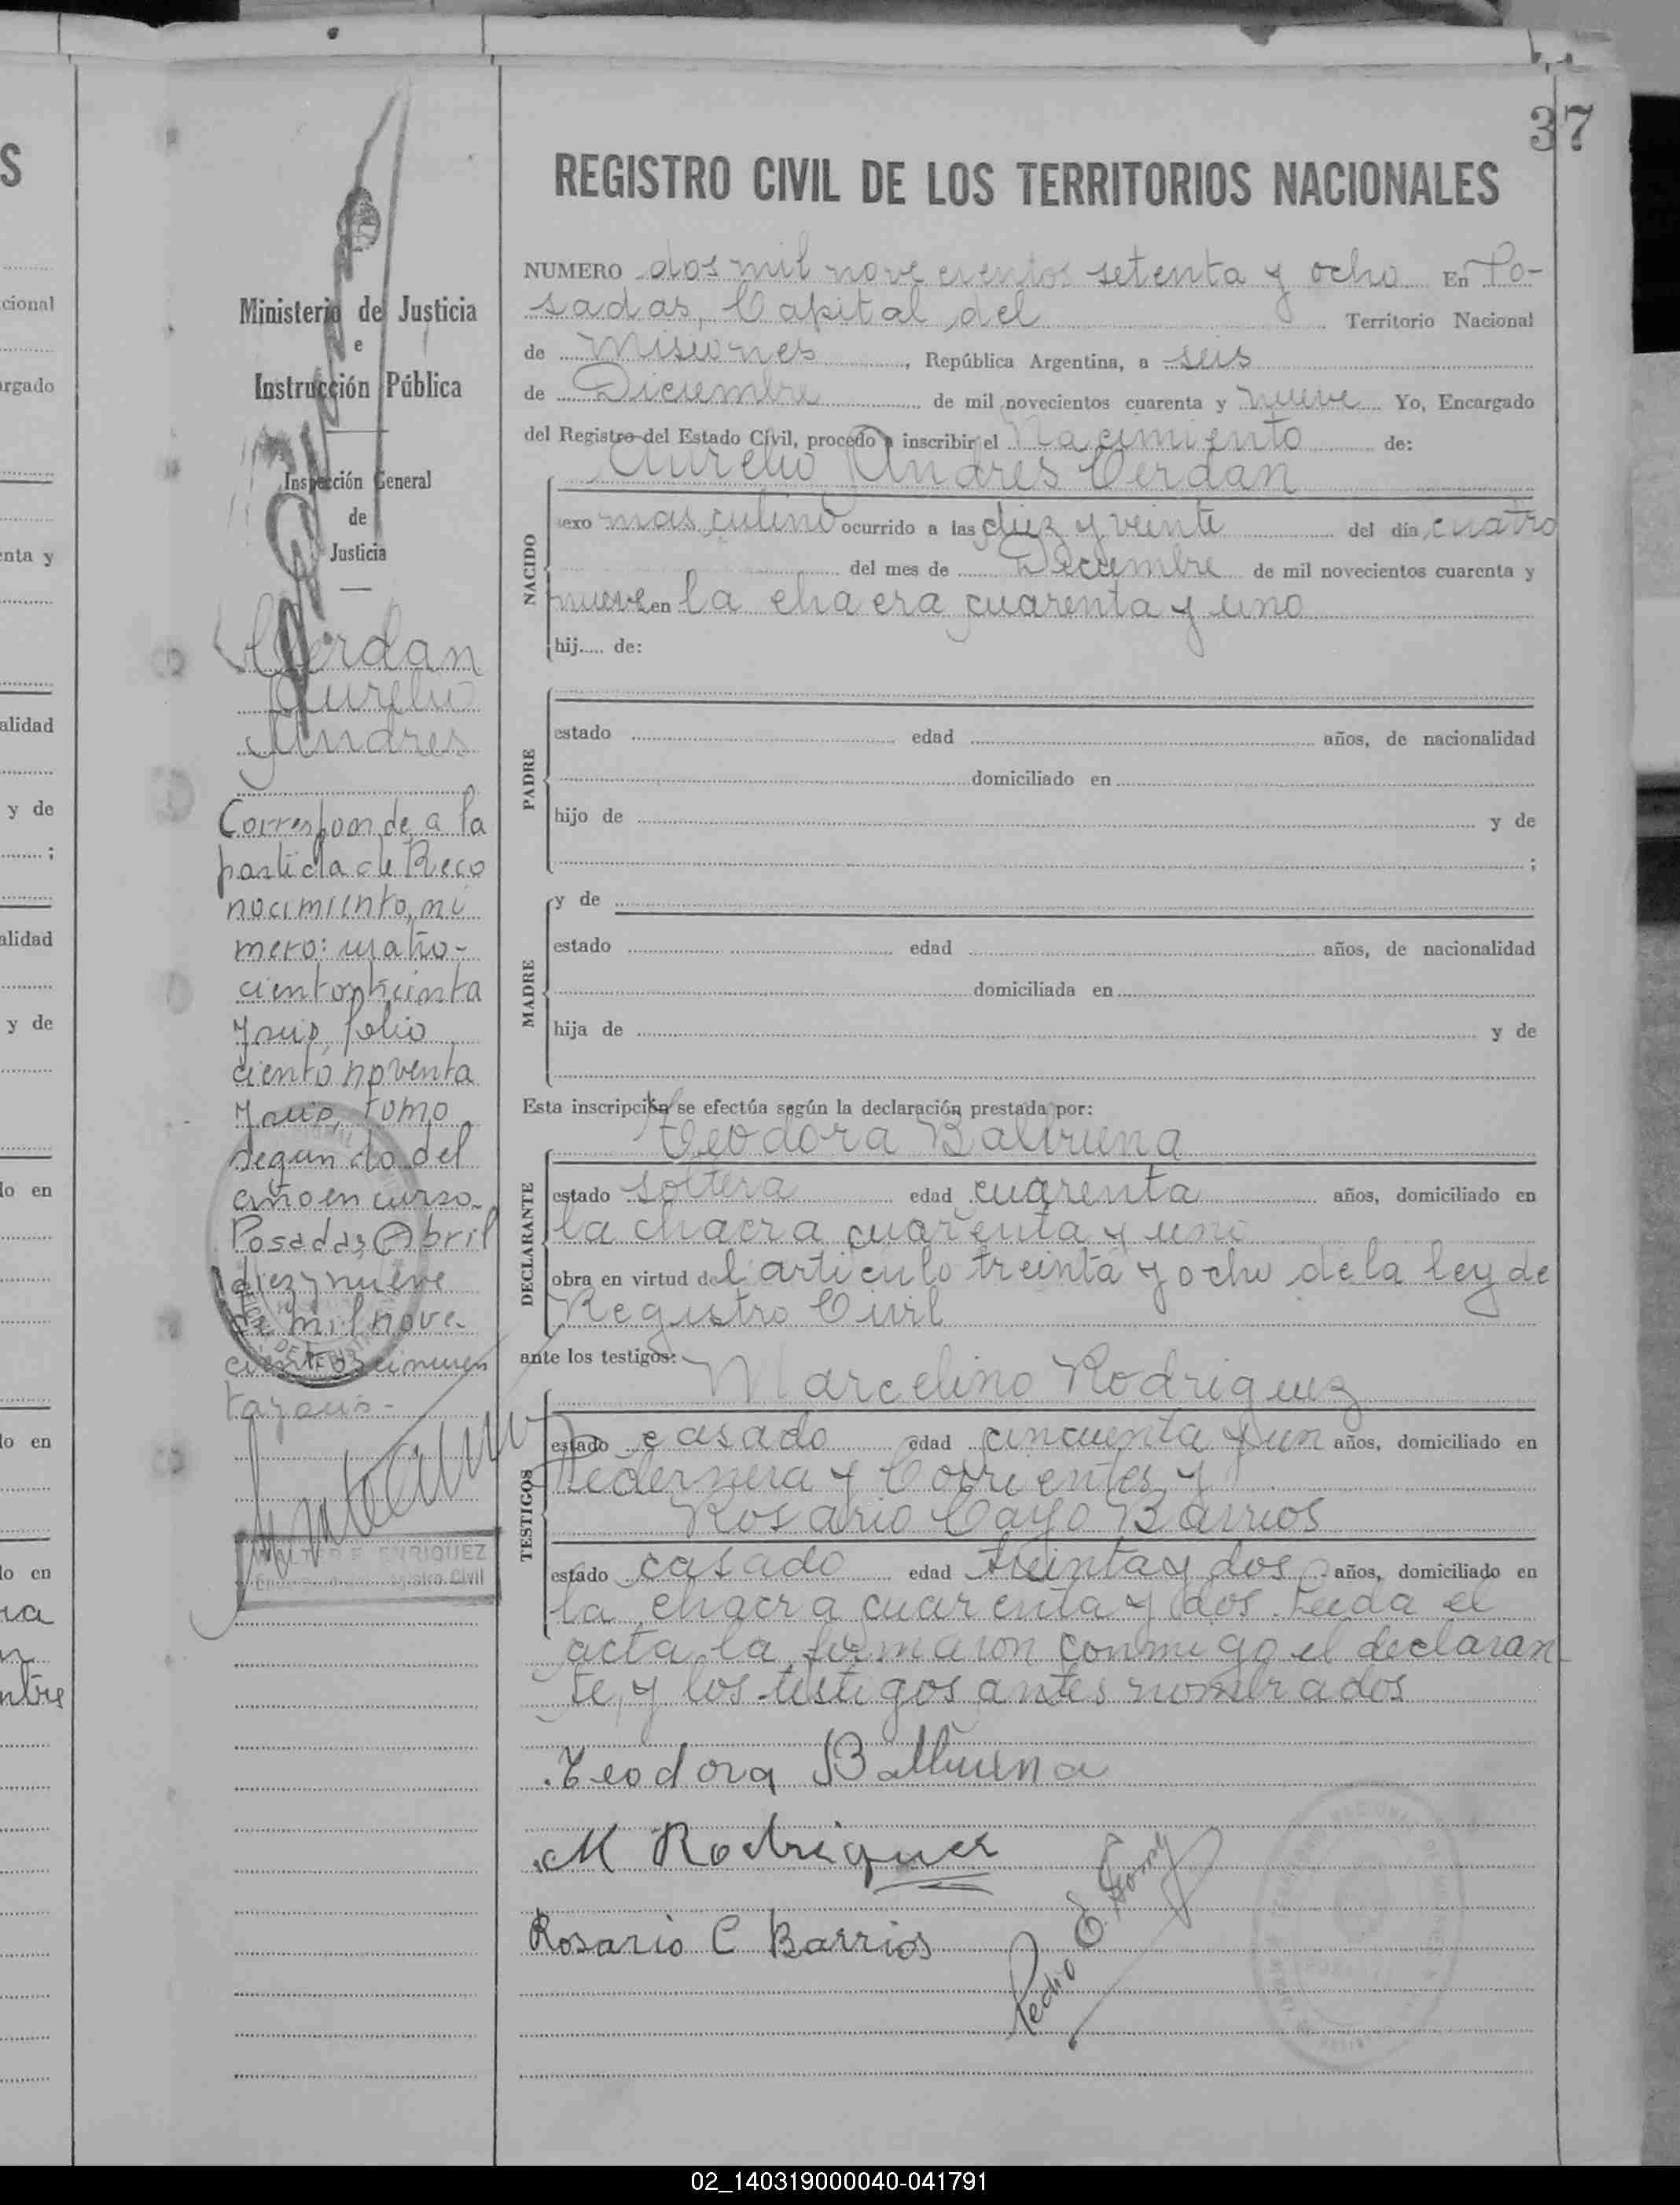 37
REGISTRO CIVIL DE LOS TERRITORIOS NACIONALES
Ministerio de Justicia
e
Instrucción Pública
Inspección General
de
Justicia
Cerdan
Aurelio
Andres
Corresponde a la
partida de Reco
nocimiento, nú
mero: cuatro-
cientos treinta
y seis, folio
ciento noventa
y seis, tomo
segundo del
año en curso.
Posadas, Abril
diez y nueve
de mil nove-
cientos cincuen
ta y seis.-
WALTER E. ENRIQUEZ
Registro Civil
NUMERO dos mil novecientos setenta y ocho En Po-
sadas, Capital del Territorio Nacional
de Misiones, República Argentina, a seis
de Diciembre de mil novecientos cuarenta y nueve Yo, Encargado
del Registro del Estado Civil, procedo a inscribir el Nacimiento de:
Aurelio Andres Cerdan
NACIDO
sexo masculino ocurrido a las diez y veinte del día cuatro
del mes de Diciembre de mil novecientos cuarenta y
nueve en la chacra cuarenta y uno
hij..... de:
PADRE
estado edad años, de nacionalidad
domiciliado en
hijo de y de
;
MADRE
y de
estado edad años, de nacionalidad
domiciliada en
hija de y de
Esta inscripción se efectúa según la declaración prestada por:
Teodora
DECLARANTE
estado soltera edad cuarenta años, domiciliado en
la chacra cuarenta y uno
obra en virtud del articulo treinta y ocho de la ley de
Registro Civil
ante los testigos:
Marcelino Rodriguez
TESTIGOS
estado casado edad cincuenta y un años, domiciliado en
Pedernera y Corrientes y
Rosario Cayo Barrios
estado casado edad treinta y dos años, domiciliado en
la chacra cuarenta y dos. Leida el
acta la firmaron conmigo el declaran
te, y los testigos antes nombrados
Teodora
M Rodriguez
Rosario C Barrios
Pedro
S
cional
argado
enta y
alidad
y de
;
alidad
y de
do en
do en
do en
02_140319000040-041791